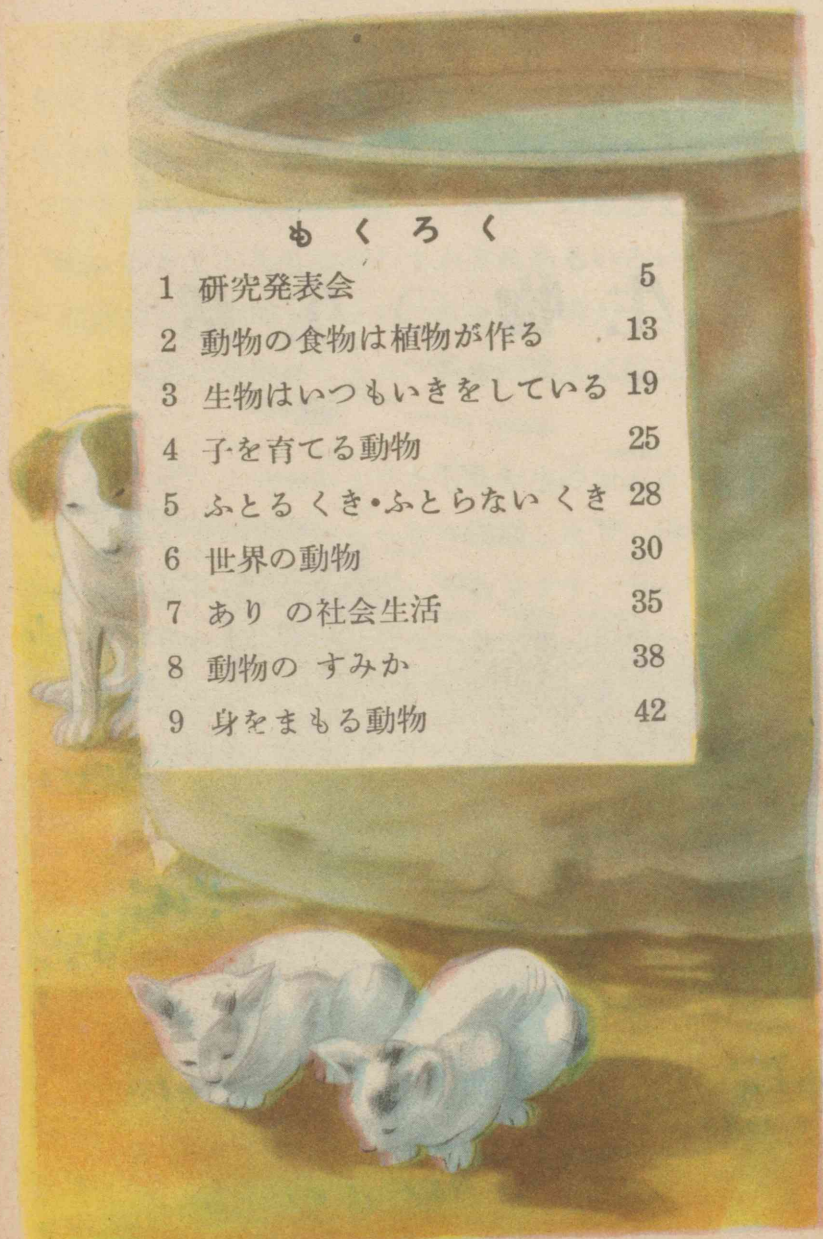 もくろく
1 研究発表会 5
2 動物の食物は植物が作る 13
3 生物はいつもいきをしている 19
4 子を育てる動物 25
5 ふとる くき・ふとらない くき 28
6 世界の動物 30
7 あり の社会生活 35
8 動物の すみか 38
9 身をまもる動物 42